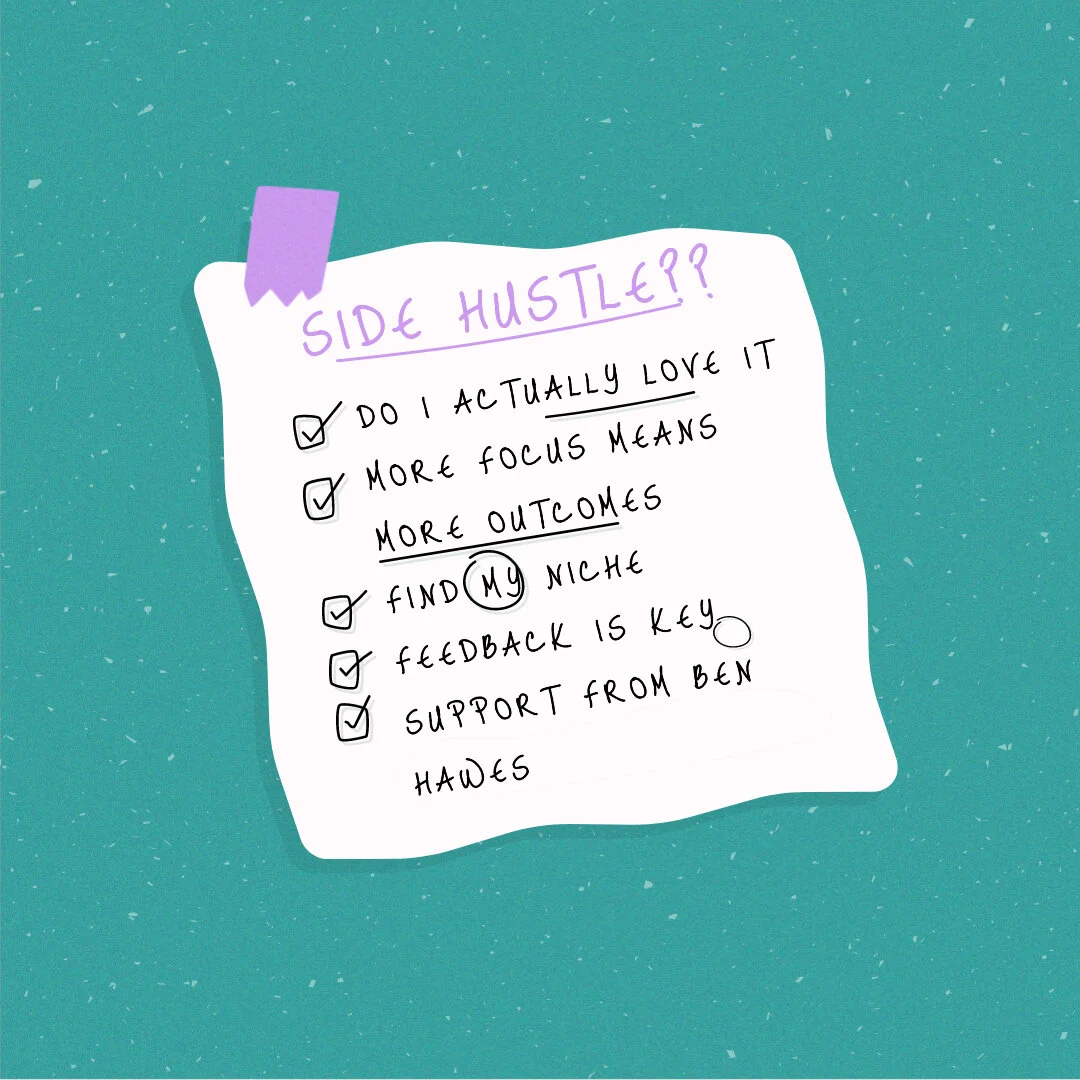 SIDE HUSTLE??
DO I ACTUALLY LOVE IT
MORE FOCUS MEANS
MORE OUTCOMES
FIND MY NICHE
FEEDBACK IS KEY
SUPPORT FROM BEN
HAWES